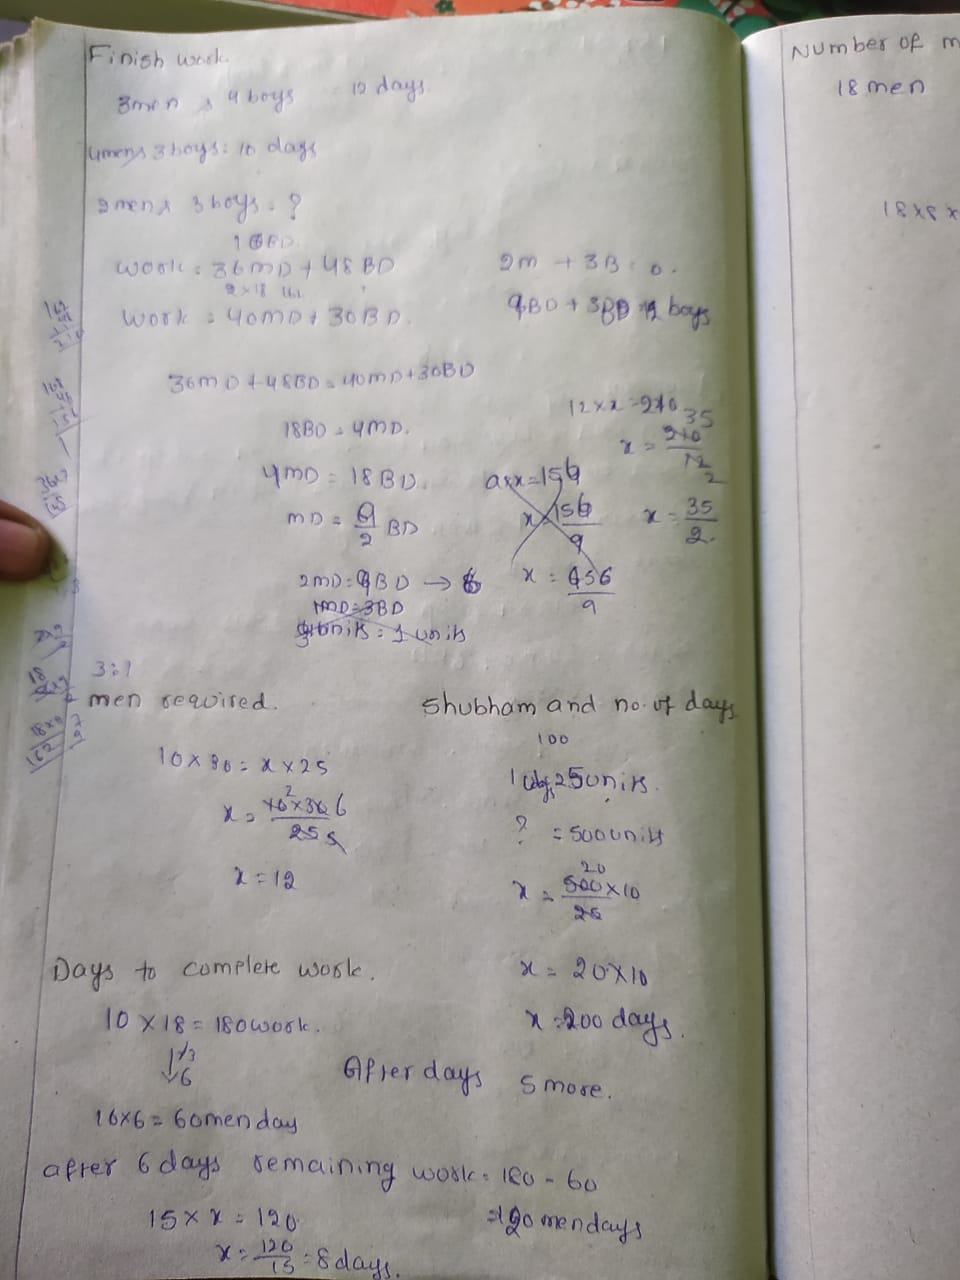 Finish work
3men & 4 boys 12 days
4mens 3 boys: 10 days
2 men & 3 boys = ?
18BD
Work = 36MD + 48 BD
2×18 162
Work = 40MD + 30BD
36MD + 48BD = 40MD + 30BD
18BD = 4MD.
4MD = 18 BD.
MD = 9/2 BD
2MD = 9BD → 6
1MD = 3BD
units = 1 units
3:1
2m + 3B = 0.
9BD + 3BD 12 boys
12 × x = 210
35
x = 210/12
2
x = 35/2.
9×x = 156
x = 156/9
x = 456/9
men required.
10 × 30 = x × 25
x = 10² × 30 6 / 25 5
x = 12
Shubham and no. of days
100
1 day 25 units.
? = 500 units
20
x = 500 × 10 / 25
x = 20×10
x = 200 days.
Days to complete work.
10 × 18 = 180 work.
1/3
↓ 6
After days 5 more.
10×6 = 60 men day
after 6 days remaining work = 180 - 60
= 120 mendays
15 × x = 120
x = 120/15 = 8 days.
Number of m
18 men
18×8×